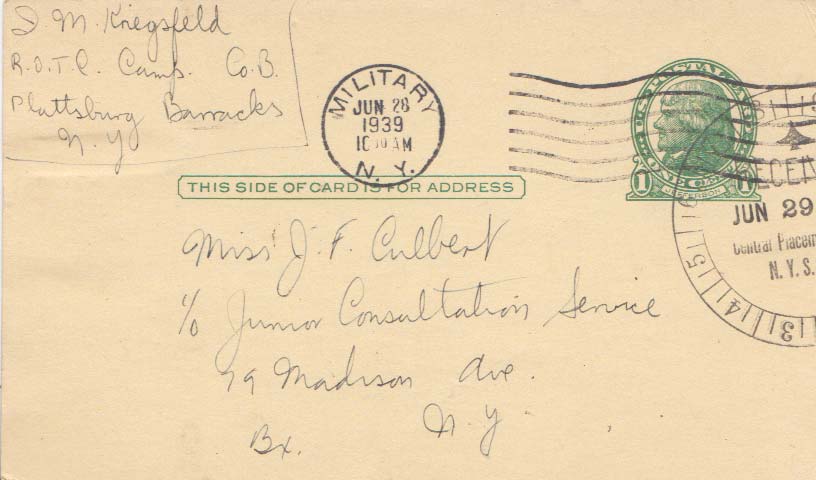 I M Kriegsfeld
R.O.T.C. Camp. Co.B.
Plattsburg Barracks
N.Y
MILITARY
JUN 28
1939
10 30 AM
N. Y.
U.S. POSTAL
ONE CENT
1 1
JEFFERSON
THIS SIDE OF CARD IS FOR ADDRESS
JUN 29
Central Placem
N.Y.S.
6 5 4 3
Miss J. F. Culbert
c/o Junior Consultation Service
79 Madison Ave.
N Y
Bx.